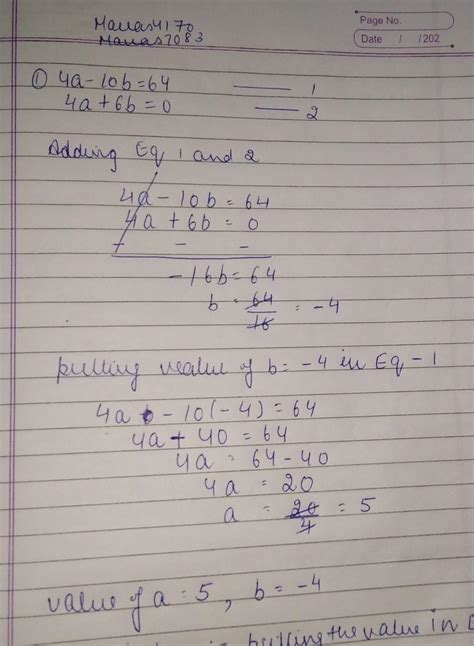 Manas4170
Manas7083
Page No.
Date / /202
① 4a-10b=64 —— 1
4a+6b=0 —— 2
Adding Eq 1 and 2
4a-10b=64
4a+6b=0
+ - -
-16b=64
b = 64/16 = -4
putting value of b= -4 in Eq-1
4a - 10(-4) = 64
4a + 40 = 64
4a = 64-40
4a = 20
a = 20/4 = 5
value of a = 5, b= -4
putting the value in